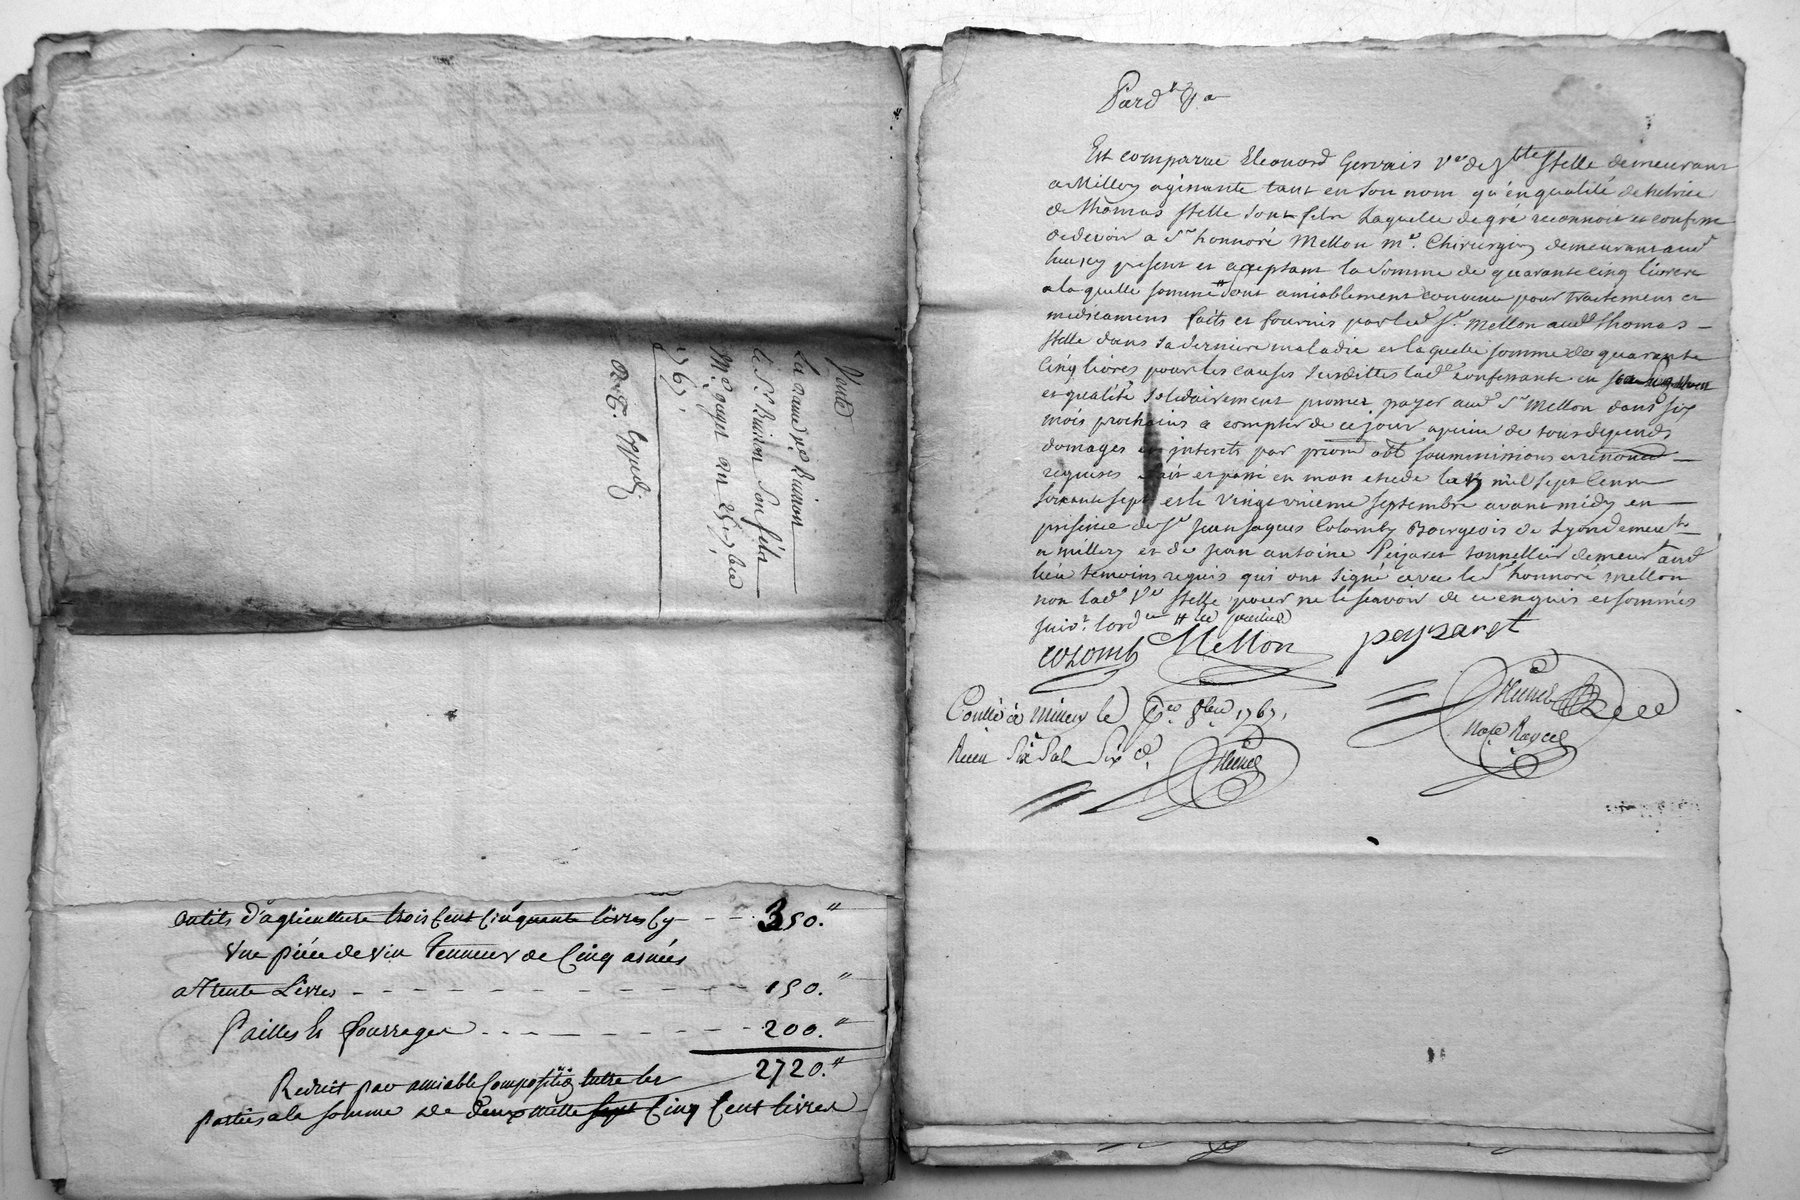 Vente
La veuve Buisson
le Sr. Buisson son fils
1767.
Expedié
outils d'agriculture trois Cent Cinquante livres Cy - - 350."
Une piéce de vin Teneur de Cinq asnées
a Trente Livres - - - - - - - - - - - - 150."
Pailles & fourrages - - - - - - - - - 200."
2720."
Reduit par amiable Composition entre les
parties a la somme de deux mille sept Cinq Cent livres
Pard.t
Est comparue Eleonord Gervais Ve. de Stelle demeurant
a Millery agissante tant en son nom qu'en qualité de
de thomas Stelle son fils Laquelle de gré reconnoit et confesse
de devoir a Sr honnoré Mellon me. Chirurgien demeurant aud
lieu icy present et aceptant la somme de quarante cinq livres
a laquelle somme sont amiablement convenu pour traitement et
medicamens faits et fournis par led Sr. Mellon aud thomas
Stelle dans sa derniere maladie et laquelle somme de quarante
Cinq livres pour les causes susdittes lade confessante en
et qualité solidairement promet payer aud Sr Mellon dans six
mois prochains a compter de ce jour a peine de tous depends
domages et interets par soummissions et renonce
requises fait et passé en mon etude mil sept Cent
soixante sept et le vingt unieme septembre avant midy en
présence de Sr jean jaques Colomby Bourgeois de Lyon demeurt
a millery et de jean antoine Peyzaret tonnellier demeurt aud
lieu temoins requis qui ont signé avec led Sr honnoré Mellon
non lade Ve Stelle pour ne le scavoir de ce enquis et sommés
suivt. lord
colomb Mellon peyzaret
Conllé à Millery le 8bre 1767,
Recu Six Sols Six d.
Note Royal